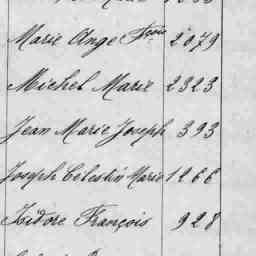 Marie Ange Fçoise 2079
Michel Marie 2323
Jean Marie Joseph 393
Joseph Célestin Marie 1266
Isidore François 928